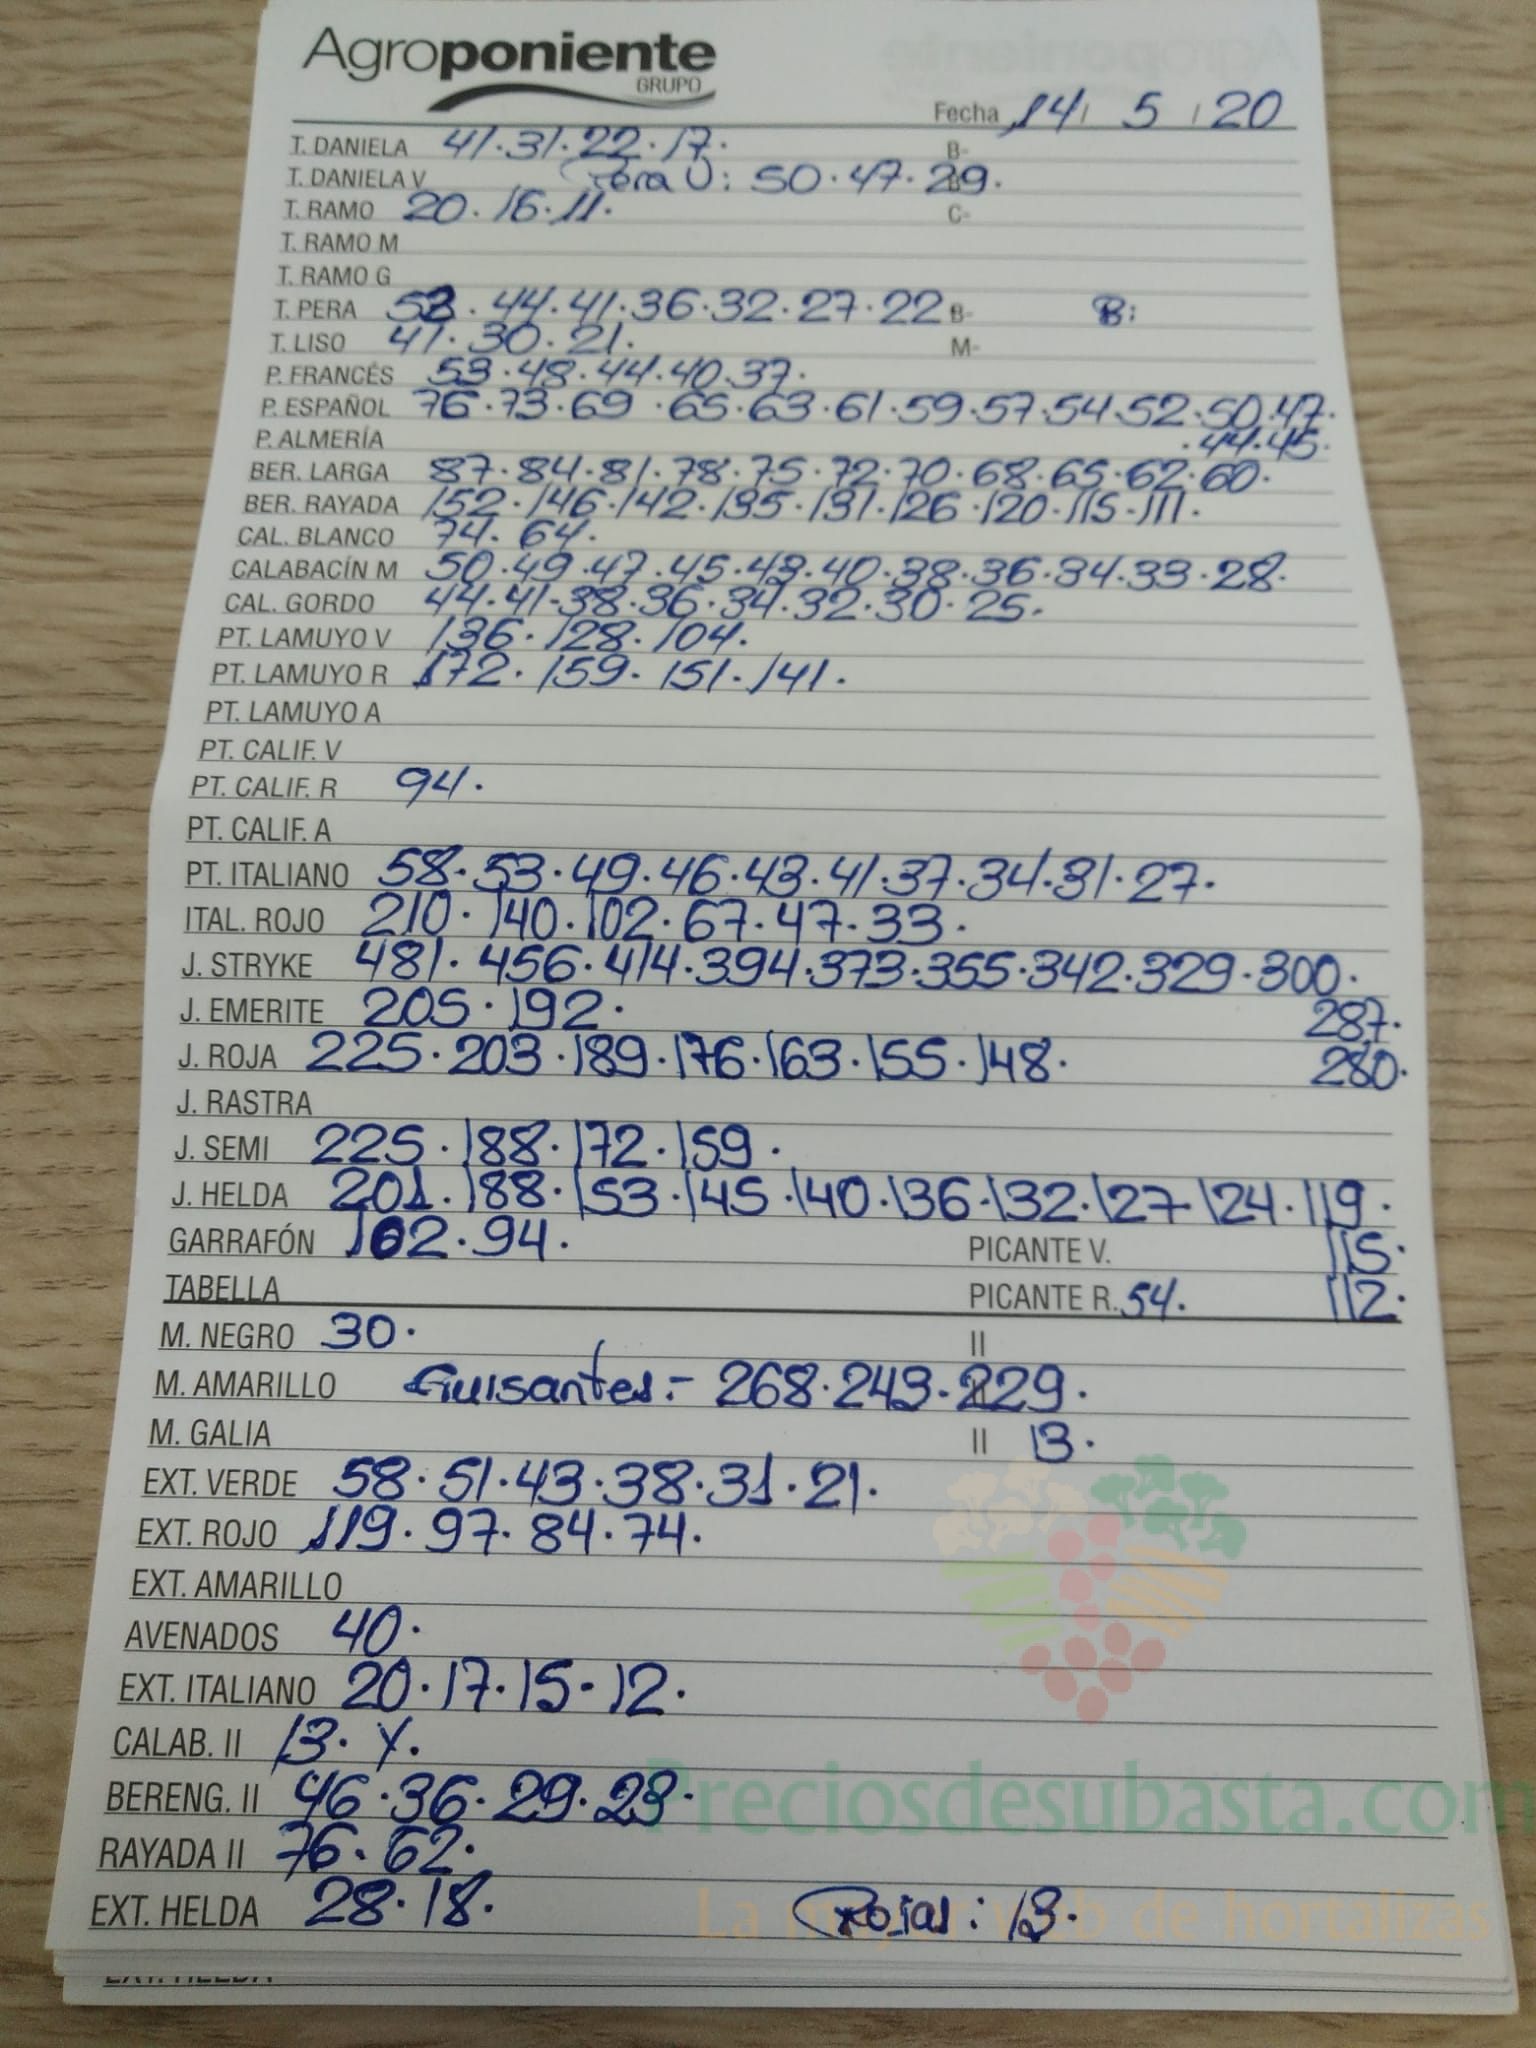 Agroponiente
GRUPO
Fecha 14/ 5 / 20
T. DANIELA 41.31.22.17. B-
T. DANIELA V Pera V: 50.47.29. B-
T. RAMO 20.16.11. C-
T. RAMO M
T. RAMO G
T. PERA 53.44.41.36.32.27.22. B- B:
T. LISO 41.30.21. M-
P. FRANCÉS 53.48.44.40.37.
P. ESPAÑOL 76.73.69.65.63.61.59.57.54.52.50.47.
P. ALMERÍA .44.45.
BER. LARGA 87.84.81.78.75.72.70.68.65.62.60.
BER. RAYADA 152.146.142.135.131.126.120.115.111.
CAL. BLANCO 74.64.
CALABACÍN M 50.49.47.45.43.40.38.36.34.33.28.
CAL. GORDO 44.41.38.36.34.32.30.25.
PT. LAMUYO V 136.128.104.
PT. LAMUYO R 172.159.151.141.
PT. LAMUYO A
PT. CALIF. V
PT. CALIF. R 94.
PT. CALIF. A
PT. ITALIANO 58.53.49.46.43.41.37.34.31.27.
ITAL. ROJO 210.140.102.67.47.33.
J. STRYKE 481.456.414.394.373.355.342.329.300.
J. EMERITE 205.192. 287.
J. ROJA 225.203.189.176.163.155.148. 280.
J. RASTRA
J. SEMI 225.188.172.159.
J. HELDA 201.188.153.145.140.136.132.127.124.119.
GARRAFÓN 102.94. PICANTE V. 115.
TABELLA PICANTE R. 54. 112.
M. NEGRO 30. II
M. AMARILLO Guisantes:- 268.243.229.
M. GALIA II 13.
EXT. VERDE 58.51.43.38.31.21.
EXT. ROJO 119.97.84.74.
EXT. AMARILLO
AVENADOS 40.
EXT. ITALIANO 20.17.15.12.
CALAB. II 13. Y.
BERENG. II 46.36.29.23.
Preciosdesubasta.com
RAYADA II 76.62.
EXT. HELDA 28.18. Rojas: 13.
La mejor web de hortalizas
EXT. HELDA